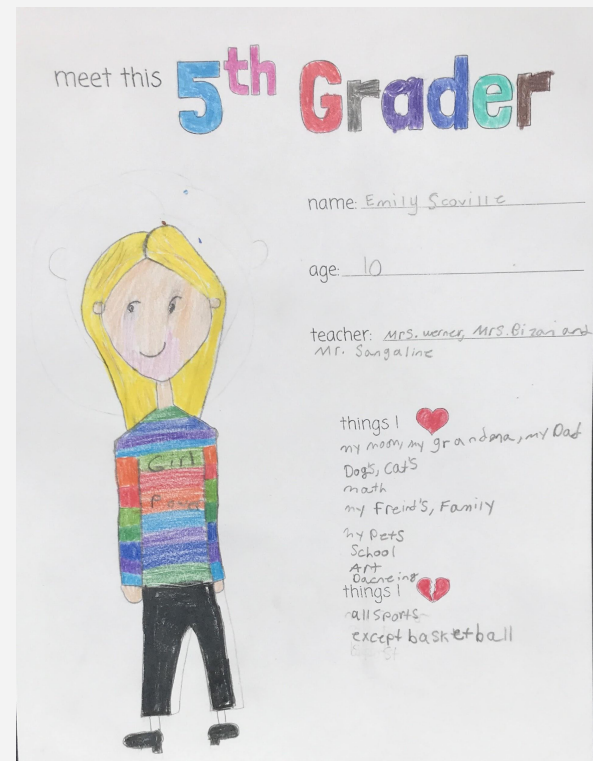 meet this 5th Grader
name: Emily Scoville
age: 10
teacher: Mrs. werner, Mrs. Bizari and
Mr. Sangaline
things I
my mom, my grandma, my Dad
Dog's, Cat's
math
my Freind's, Family
my Pets
School
Art
Dacneing
things I
all Sports
except basketball
Girl